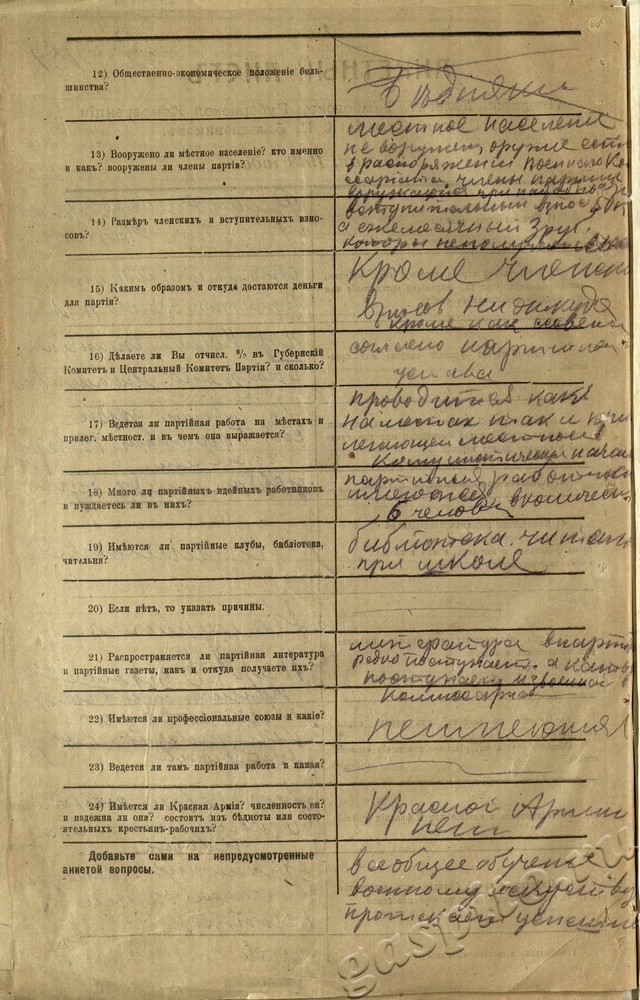 12) Общественно-экономическое положенiе боль-
шинства?
Бѣдняки
13) Вооружено ли мѣстное населенiе? кто именно
и какъ? вооружены ли члены партiи?
местное население
не воружен, оружие есть
в распоряжении военного Ко
члены партии
14) Размѣръ членскихъ и вступительныхъ взно-
совъ?
вступительный взнос
а ежемесячный 3 руб.
которы
15) Какимъ образомъ и откуда достаются деньги
для партiи?
Кроме членск
взносов ни откуда
16) Дѣлаете ли Вы отчисл. % въ Губернскiй
Комитетъ и Центральный Комитетъ Партiи? и сколько?
кроме как
согласно партийнаго
устава
17) Ведется ли партiйная работа на мѣстахъ и
прилег. мѣстност. и въ чемъ она выражается?
проводится как
на местах так и при
легающей местност
18) Много ли партiйныхъ идейныхъ работниковъ
и нуждаетесь ли въ нихъ?
партийных работнико
имеется в количест
6 человек
19) Имѣются ли партiйные клубы, библiотека,
читальня?
библиотека. читал
при школе
20) Если нѣтъ, то указать причины.
21) Распространяется ли партiйная литература
и партiйныя газеты, какъ и откуда получаете ихъ?
литература в парт
редко поступает. а
поступает из военной
комиссариа
22) Имѣются ли профессiональные союзы и какiе?
не имеются
23) Ведется ли тамъ партiйная работа и какая?
24) Имѣется ли Красная Армiя? численность ея?
и надежна ли она? состоитъ изъ бѣдноты или состо-
ятельныхъ крестьянъ-рабочихъ?
Красной Армии
нет
Добавьте сами на непредусмотренные
анкетой вопросы.
всеобщее обучение
военному искуству
протекает успешно